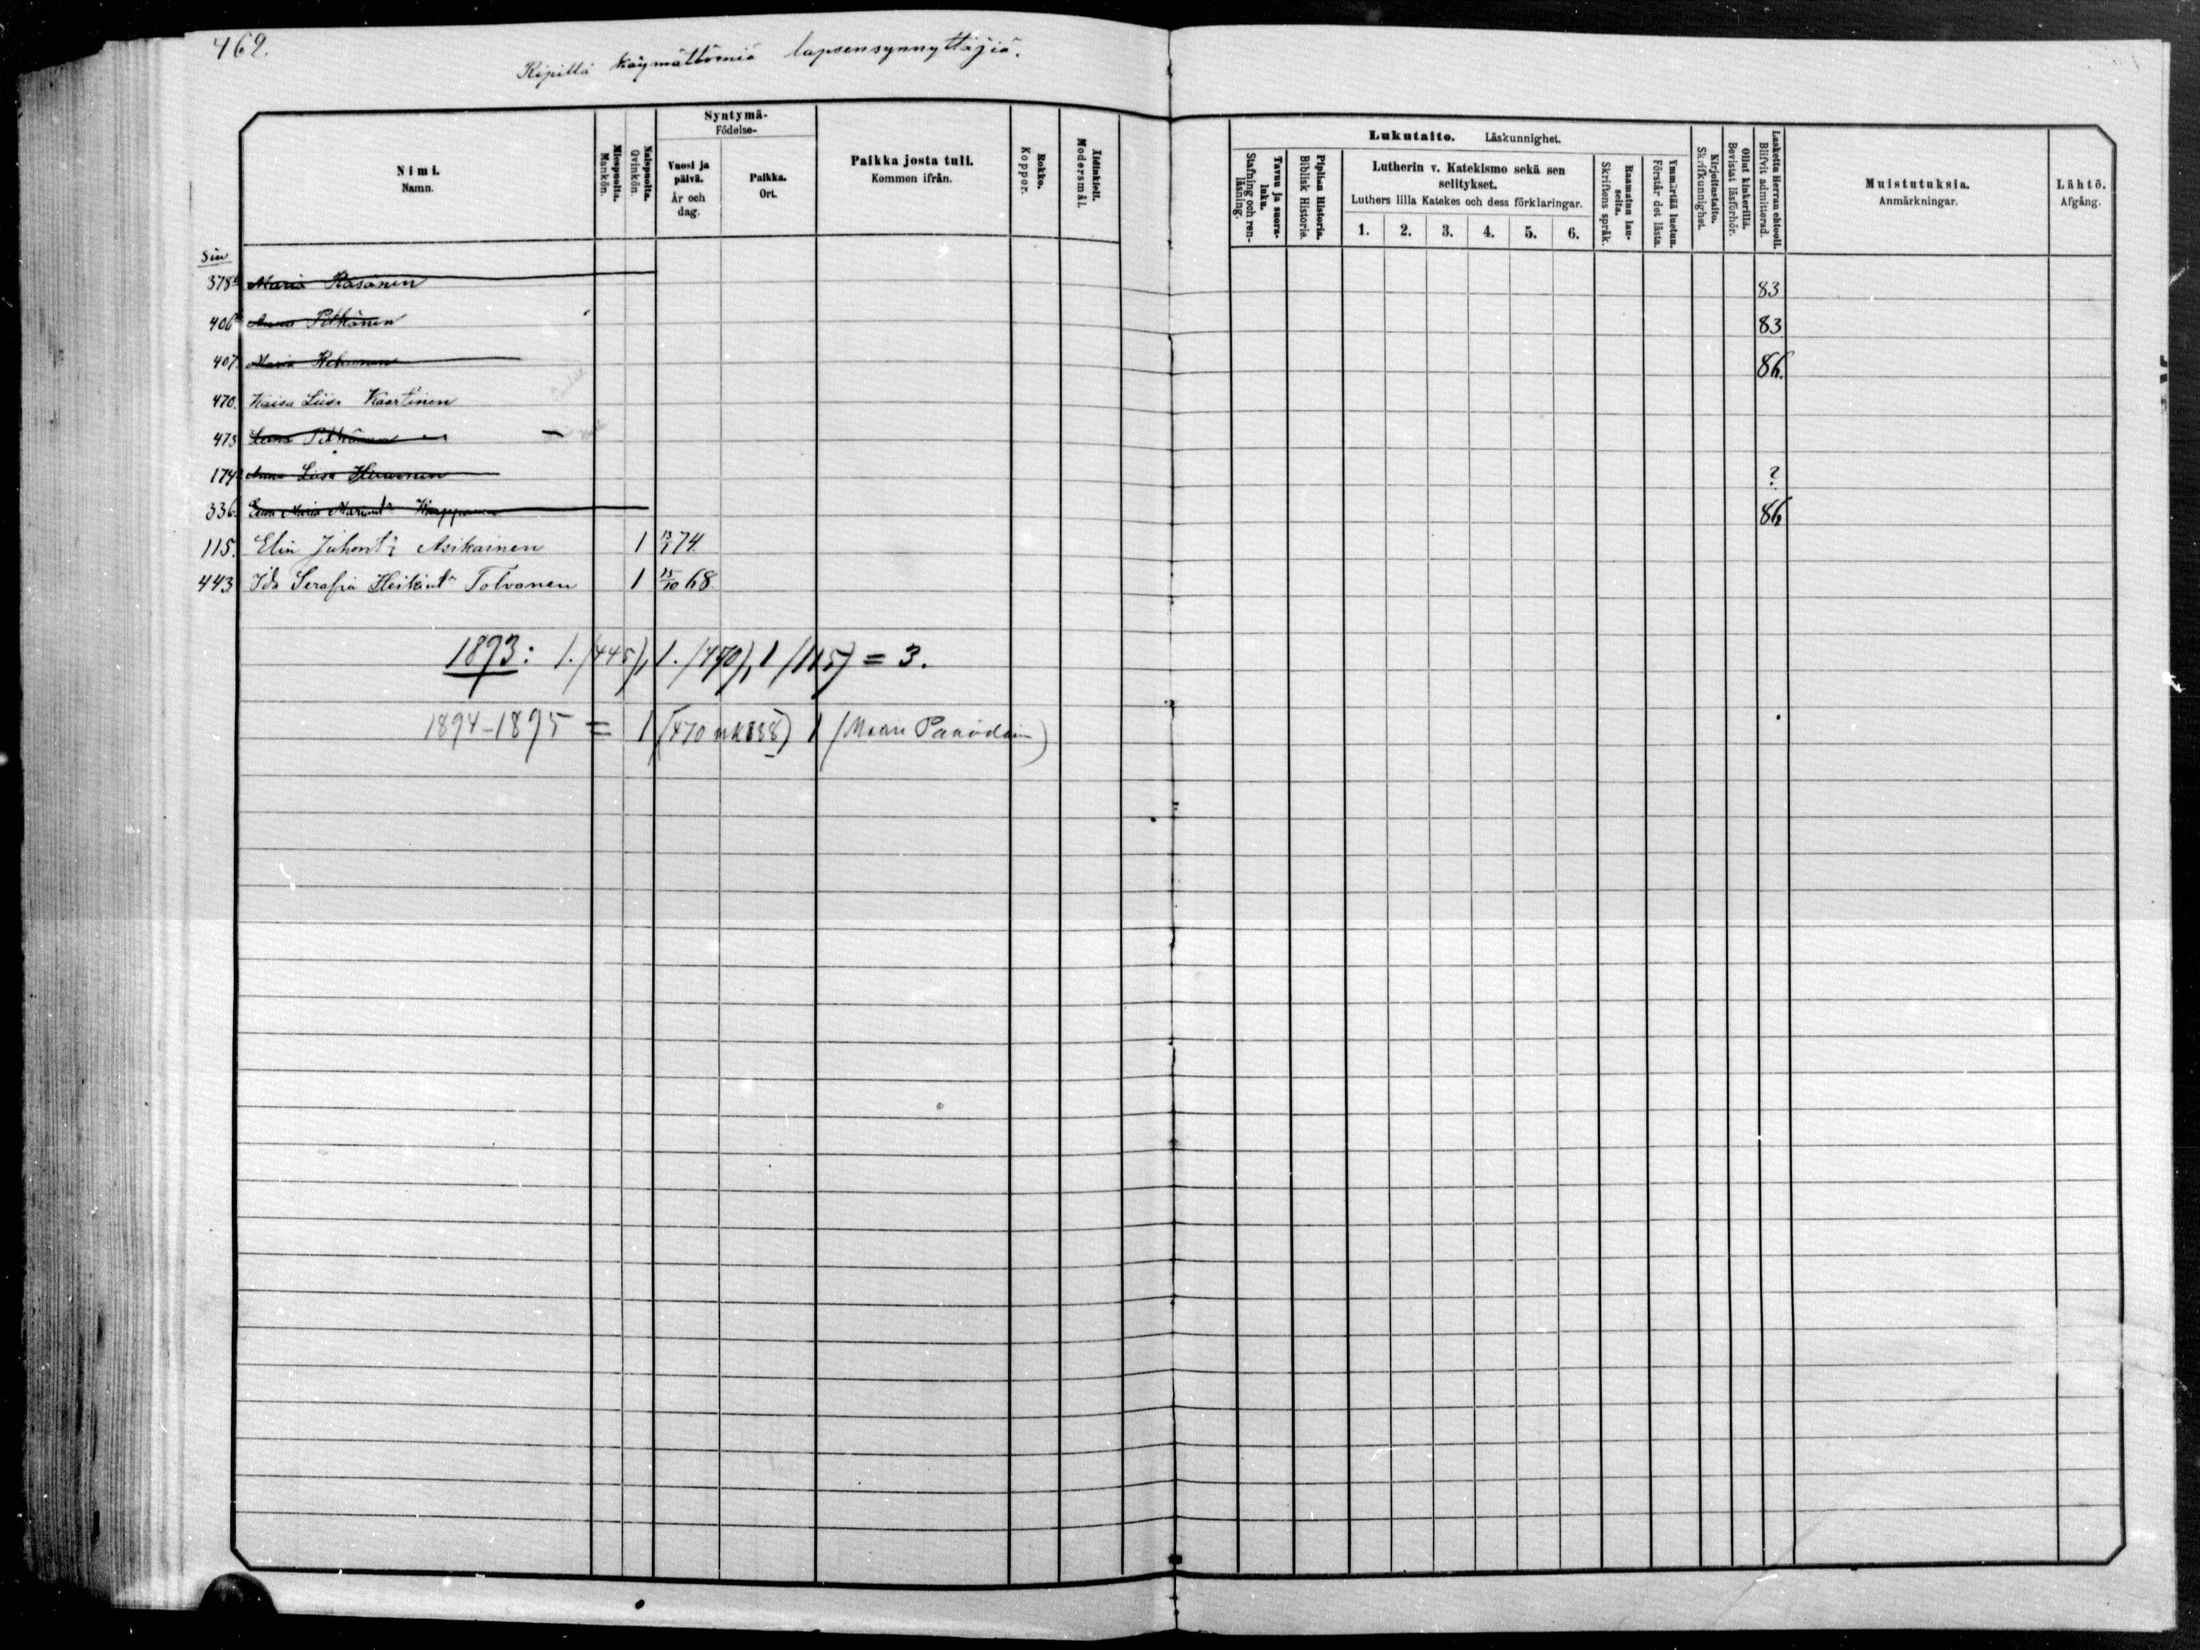 462.
Ripillä käymättömiä lapsensynnyttäjiä.
Nimi.
Namn.
Miespuolta.
Mankön.
Naispuolta.
Qvinkön.
Syntymä-
Födelse-
Vuosi ja päivä.
År och dag.
Paikka.
Ort.
Paikka josta tuli.
Kommen ifrån.
Rokko.
Koppor.
Äidinkieli.
Modersmål.
Lukutaito. Läskunnighet.
Tavuu ja suoraluku.
Stafning och renläsning.
Piplian Historia.
Biblisk Historie.
Lutherin v. Katekismo sekä sen selitykset.
Luthers lilla Katekes och dess förklaringar.
1. 2. 3. 4. 5. 6.
Raamatun lauseita.
Skriftens språk.
Ymmärtää luetun.
Förstår det lästa.
Kirjoitustaito.
Skrifkunnighet.
Ollut kinkerillä.
Bevistat läsförhör.
Laskettu Herran ehtoolle.
Blifvit admitterad.
Muistutuksia.
Anmärkningar.
Lähtö.
Afgång.
Siv
378 Maria Räsänen 83
406 Anna Pitkänen 83
407. Maria 86.
470. Kaisa Liisa Kaartinen
475 Leena Pitkänen
174 Anna Liisa ?
336. Maria 86
115. Elin Juhont: Asikainen 1 13/1 74.
443 Ida Serafia Heikint: Tolvanen 1 15/10 68
1893: 1. (445), 1. (470), 1 (115) = 3.
1894-1895 = 1 (470 888) 1 (